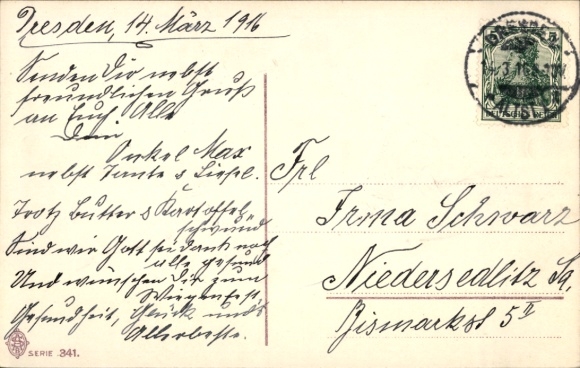 Dresden, 14. März 1916
Senden Dir nebst
freundlichen Gruss
an Euch Alle
Dein
Onkel Max
nebst Tante & Liesel.
Trotz Butter & Kartoffel-
schwund
Sind wir Gott sei dank noch
alle gesund
Und wünschen Dir zum
Wiegenfest
Gesundheit, Glück und's
Allerbeste.
SERIE 341.
DRESDEN
Frl
Irma Schwarz
Niedersedlitz Sa.
Bismarkst 5 II